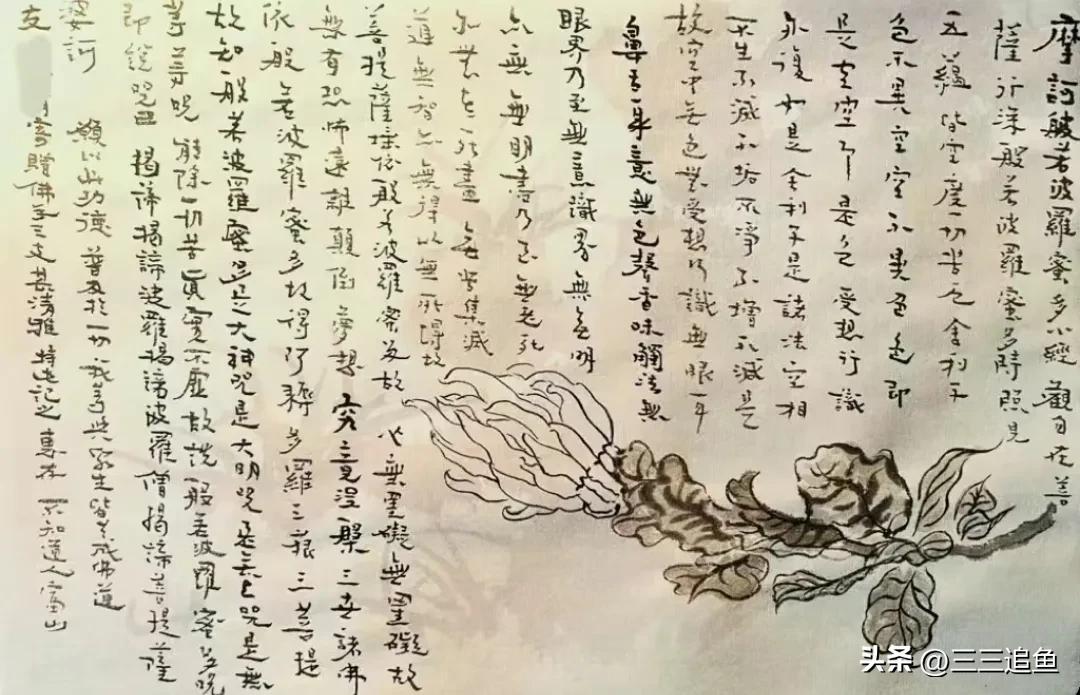 摩訶般若波羅蜜多小經觀自在菩
薩行深般若波羅蜜多時照見
五蘊皆空度一切苦厄舍利子
色不異空空不異色色即
是空空即是色受想行識
亦復如是舍利子是諸法空相
不生不滅不垢不淨不增不減是
故空中無色無受想行識無眼耳
鼻舌身意無色聲香味觸法無
眼界乃至無意識界無無明
亦無無明盡乃至無老死
亦無老死盡 無苦集滅
道無智亦無得以無所得故
菩提薩埵依般若波羅蜜多故 心無罣礙無罣礙故
無有恐怖遠離顛倒夢想 究竟涅槃三世諸佛
依般若波羅蜜多故得阿耨多羅三藐三菩提
故知般若波羅蜜多是大神咒是大明咒是無上咒是無
等等咒 能除一切苦真實不虛故說般若波羅蜜多咒
即說咒曰 揭諦揭諦波羅揭諦波羅僧揭諦菩提薩
婆訶 願以此功德 普及於一切 我等與眾生皆共成佛道
友 寄贈佛手 甚清雅 特此記之 不知道人富山
头条 @三三追鱼